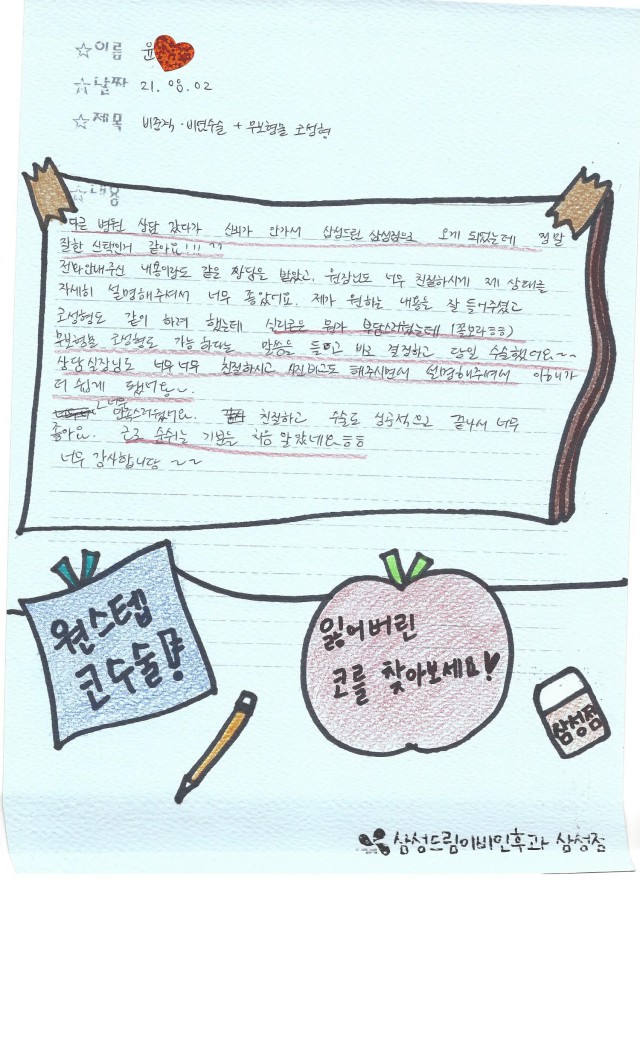 ☆이름 윤
☆날짜 21. 08. 02
☆제목 비중격·비염수술 + 무보형물 코성형
☆내용
다른 병원 상담 갔다가 신뢰가 안가서 삼성드림 삼성점으로 오게 되었는데 정말
잘한 선택인거 같아요!!! ^^
전화안내주신 내용이랑도 같은 짱담을 받았고, 원장님도 너무 친절하시게 제 상태를
자세히 설명해주셔서 너무 좋았어요. 제가 원하는 내용을 잘 들어주셨고
코성형도 같이 하려 했는데 실리콘은 뭔가 부담스러웠는데 (쫄보라ㅎㅎ)
무보형물 코성형도 가능하다는 말씀을 듣고 바로 결정하고 당일 수술했어요~~
상담실장님도 너무너무 친절하시고 사진비교도 해주시면서 설명해주셔서 이해가
더 쉽게 됐어요~
너무 만족스러웠어요. 친절하고 수술도 성공적으로 끝나서 너무
좋아요. 코로 숨쉬는 기분을 처음 알았네요ㅎㅎ
너무 감사합니당 ~~
원스텝
코수술!
잃어버린
코를 찾아보세요!
삼성점
삼성드림이비인후과 삼성점